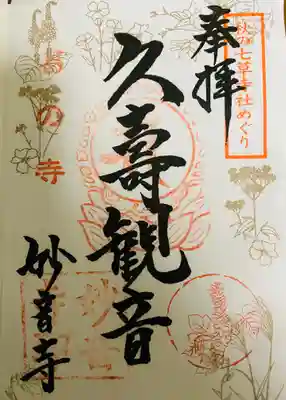 秋の七草寺社めぐり
奉拝
久壽観音
の寺
妙音寺